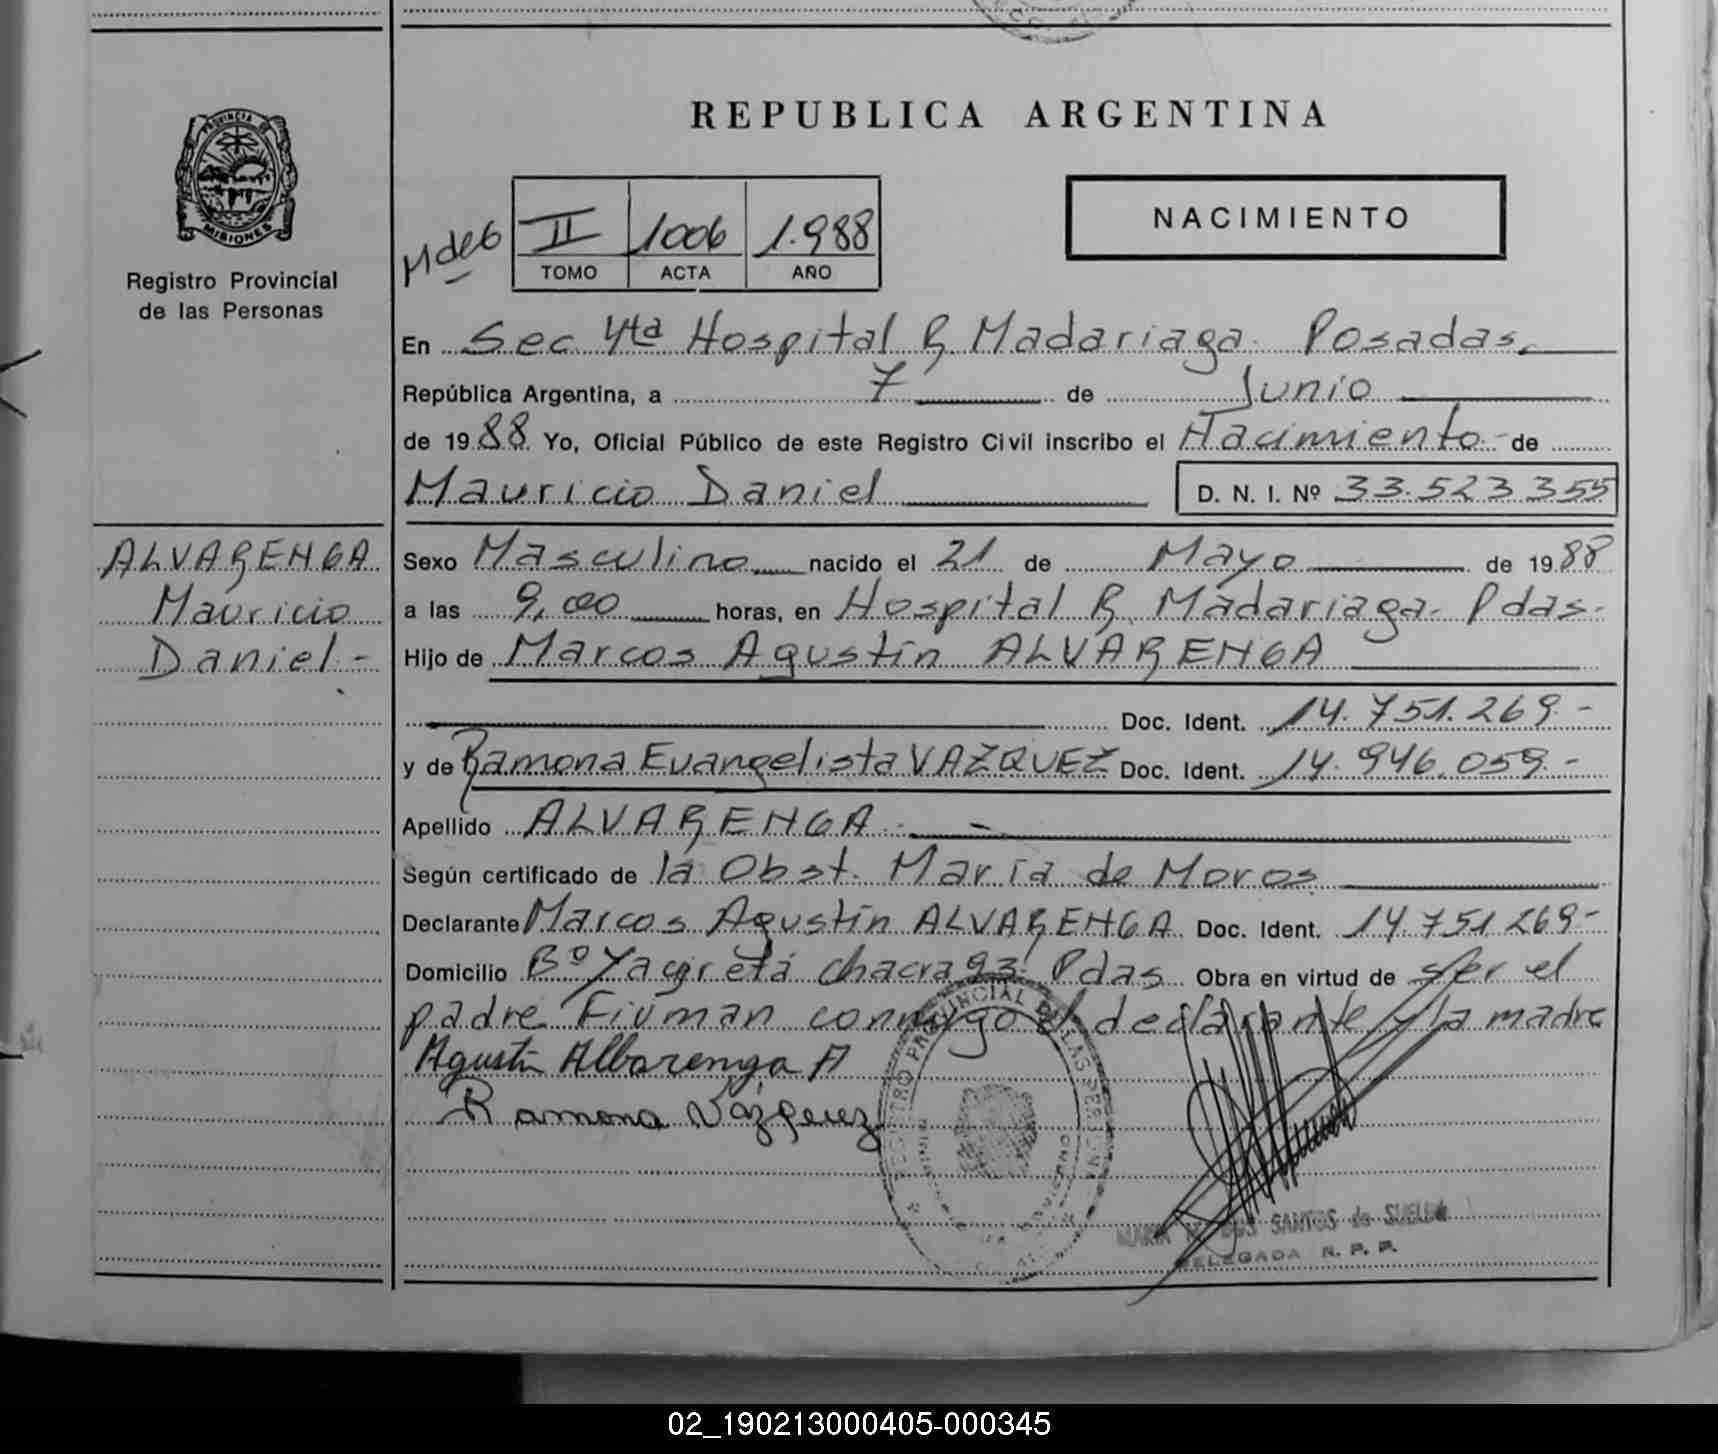 PROVINCIA DE
MISIONES
Registro Provincial
de las Personas
ALVARENGA
Mauricio
Daniel.-
REPUBLICA ARGENTINA
NACIMIENTO
II 1006 1.988
TOMO ACTA AÑO
En Sec 4ta Hospital R Madariaga. Posadas.
República Argentina, a 7 de Junio
de 1988 Yo, Oficial Público de este Registro Civil inscribo el Nacimiento- de
Mauricio Daniel D. N. I. Nº 33.523.355
Sexo Masculino nacido el 21 de Mayo de 1988
a las 9,00 horas, en Hospital R. Madariaga- Pdas-
Hijo de Marcos Agustín ALVARENGA
Doc. Ident. 14.751.269.-
y de Ramona Evangelista VAZQUEZ Doc. Ident. 14.946.059.-
Apellido ALVARENGA.-
Según certificado de la Obst. María de Moros
Declarante Marcos Agustín ALVARENGA Doc. Ident. 14.751269-
Domicilio Bº Yacyretá chacra 93 Pdas. Obra en virtud de ser el
padre Firman conmigo el declarante y la madre
Agustin Albarenga A
Ramona Vázqeuz
REGISTRO PROVINCIAL DE LAS PERSONAS
MARIA DOS SANTOS de
DELEGADA R. P. P.
02_190213000405-000345